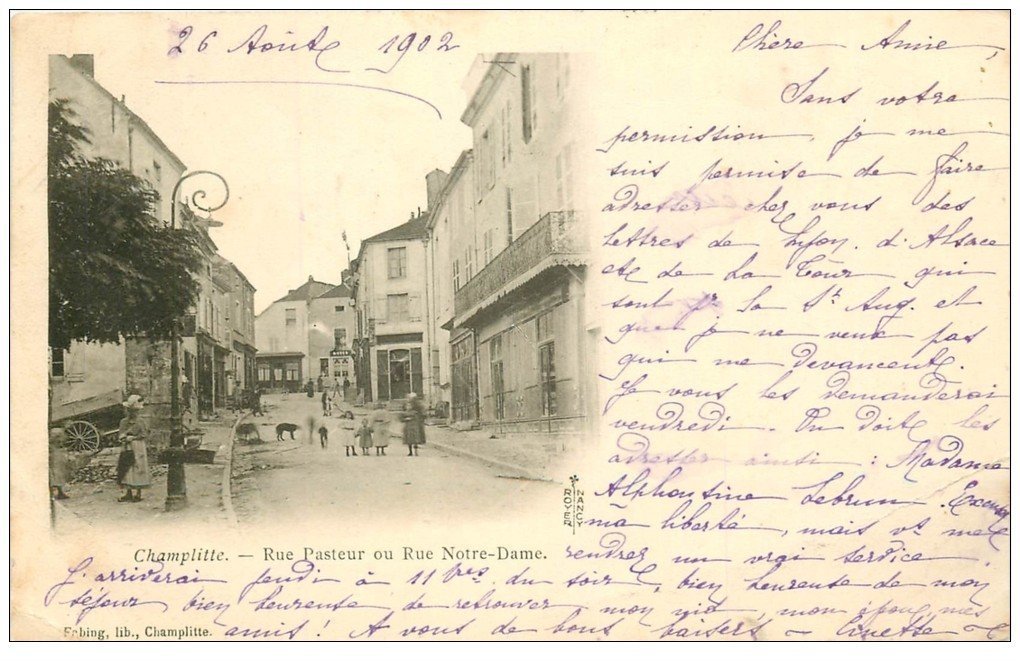 26 Août 1902
Chère Amie,
Sans votre
permission, je me
suis permise de faire
adresser chez vous des
lettres de Lyon. d'Alsace
etc de La Tour qui
sont pr la St Aug. et
que je ne veux pas
qui me devancent.
Je vous les demanderai
vendredi. On doit les
adresser ainsi : Madame
Alphonsine Lebrun. Excusez
ma liberté, mais vs me
rendrez un vrai service.
ROYER NANCY
Champlitte. — Rue Pasteur ou Rue Notre-Dame.
J'arriverai jeudi à 11 hres du soir, bien heureuse de mon
séjour bien heureuse de retrouver mon nid, mon époux, mes
amis ! A vous de bons baisers — Linette —
Febing, lib., Champlitte.